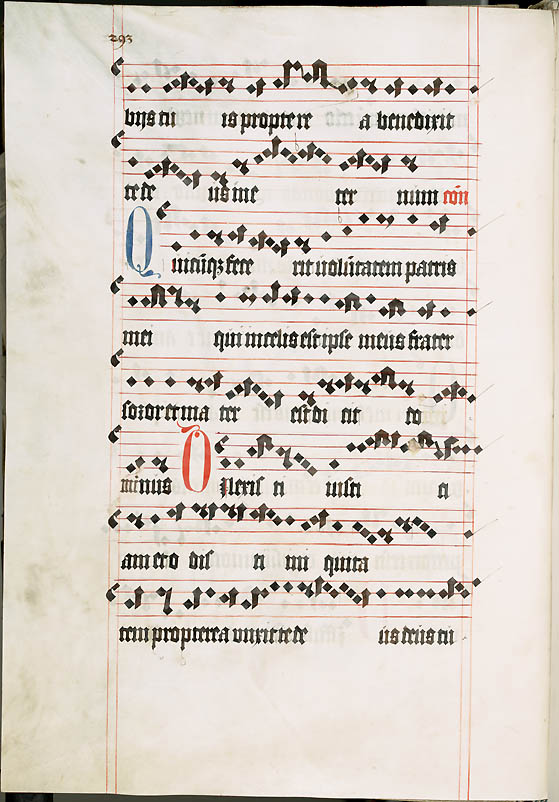 293
bijs tuis propterea benedixit
te deus in eter num con
Quicūqz fecerit volūtatem patris
mei qui in celis est ipse meus frater
soror et mater est dicit do
minus Dilexisti iusti ti
am et odisti ini quita
tem propterea vnxit te deus deus tu